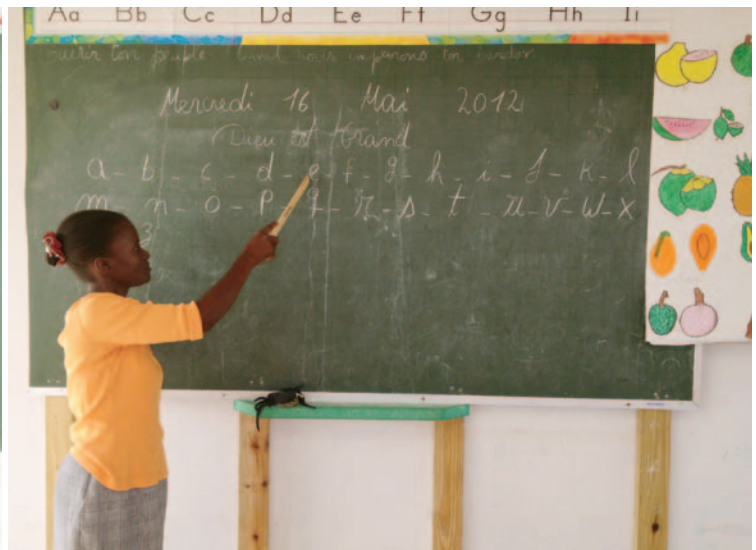 Aa Bb Cc Dd Ee Ff Gg Hh Ii
Mercredi 16 Mai 2012
Dieu est Grand
a - b - c - d - e - f - g - h - i - j - k - l
m - n - o - p - q - r - s - t - u - v - w - x
z